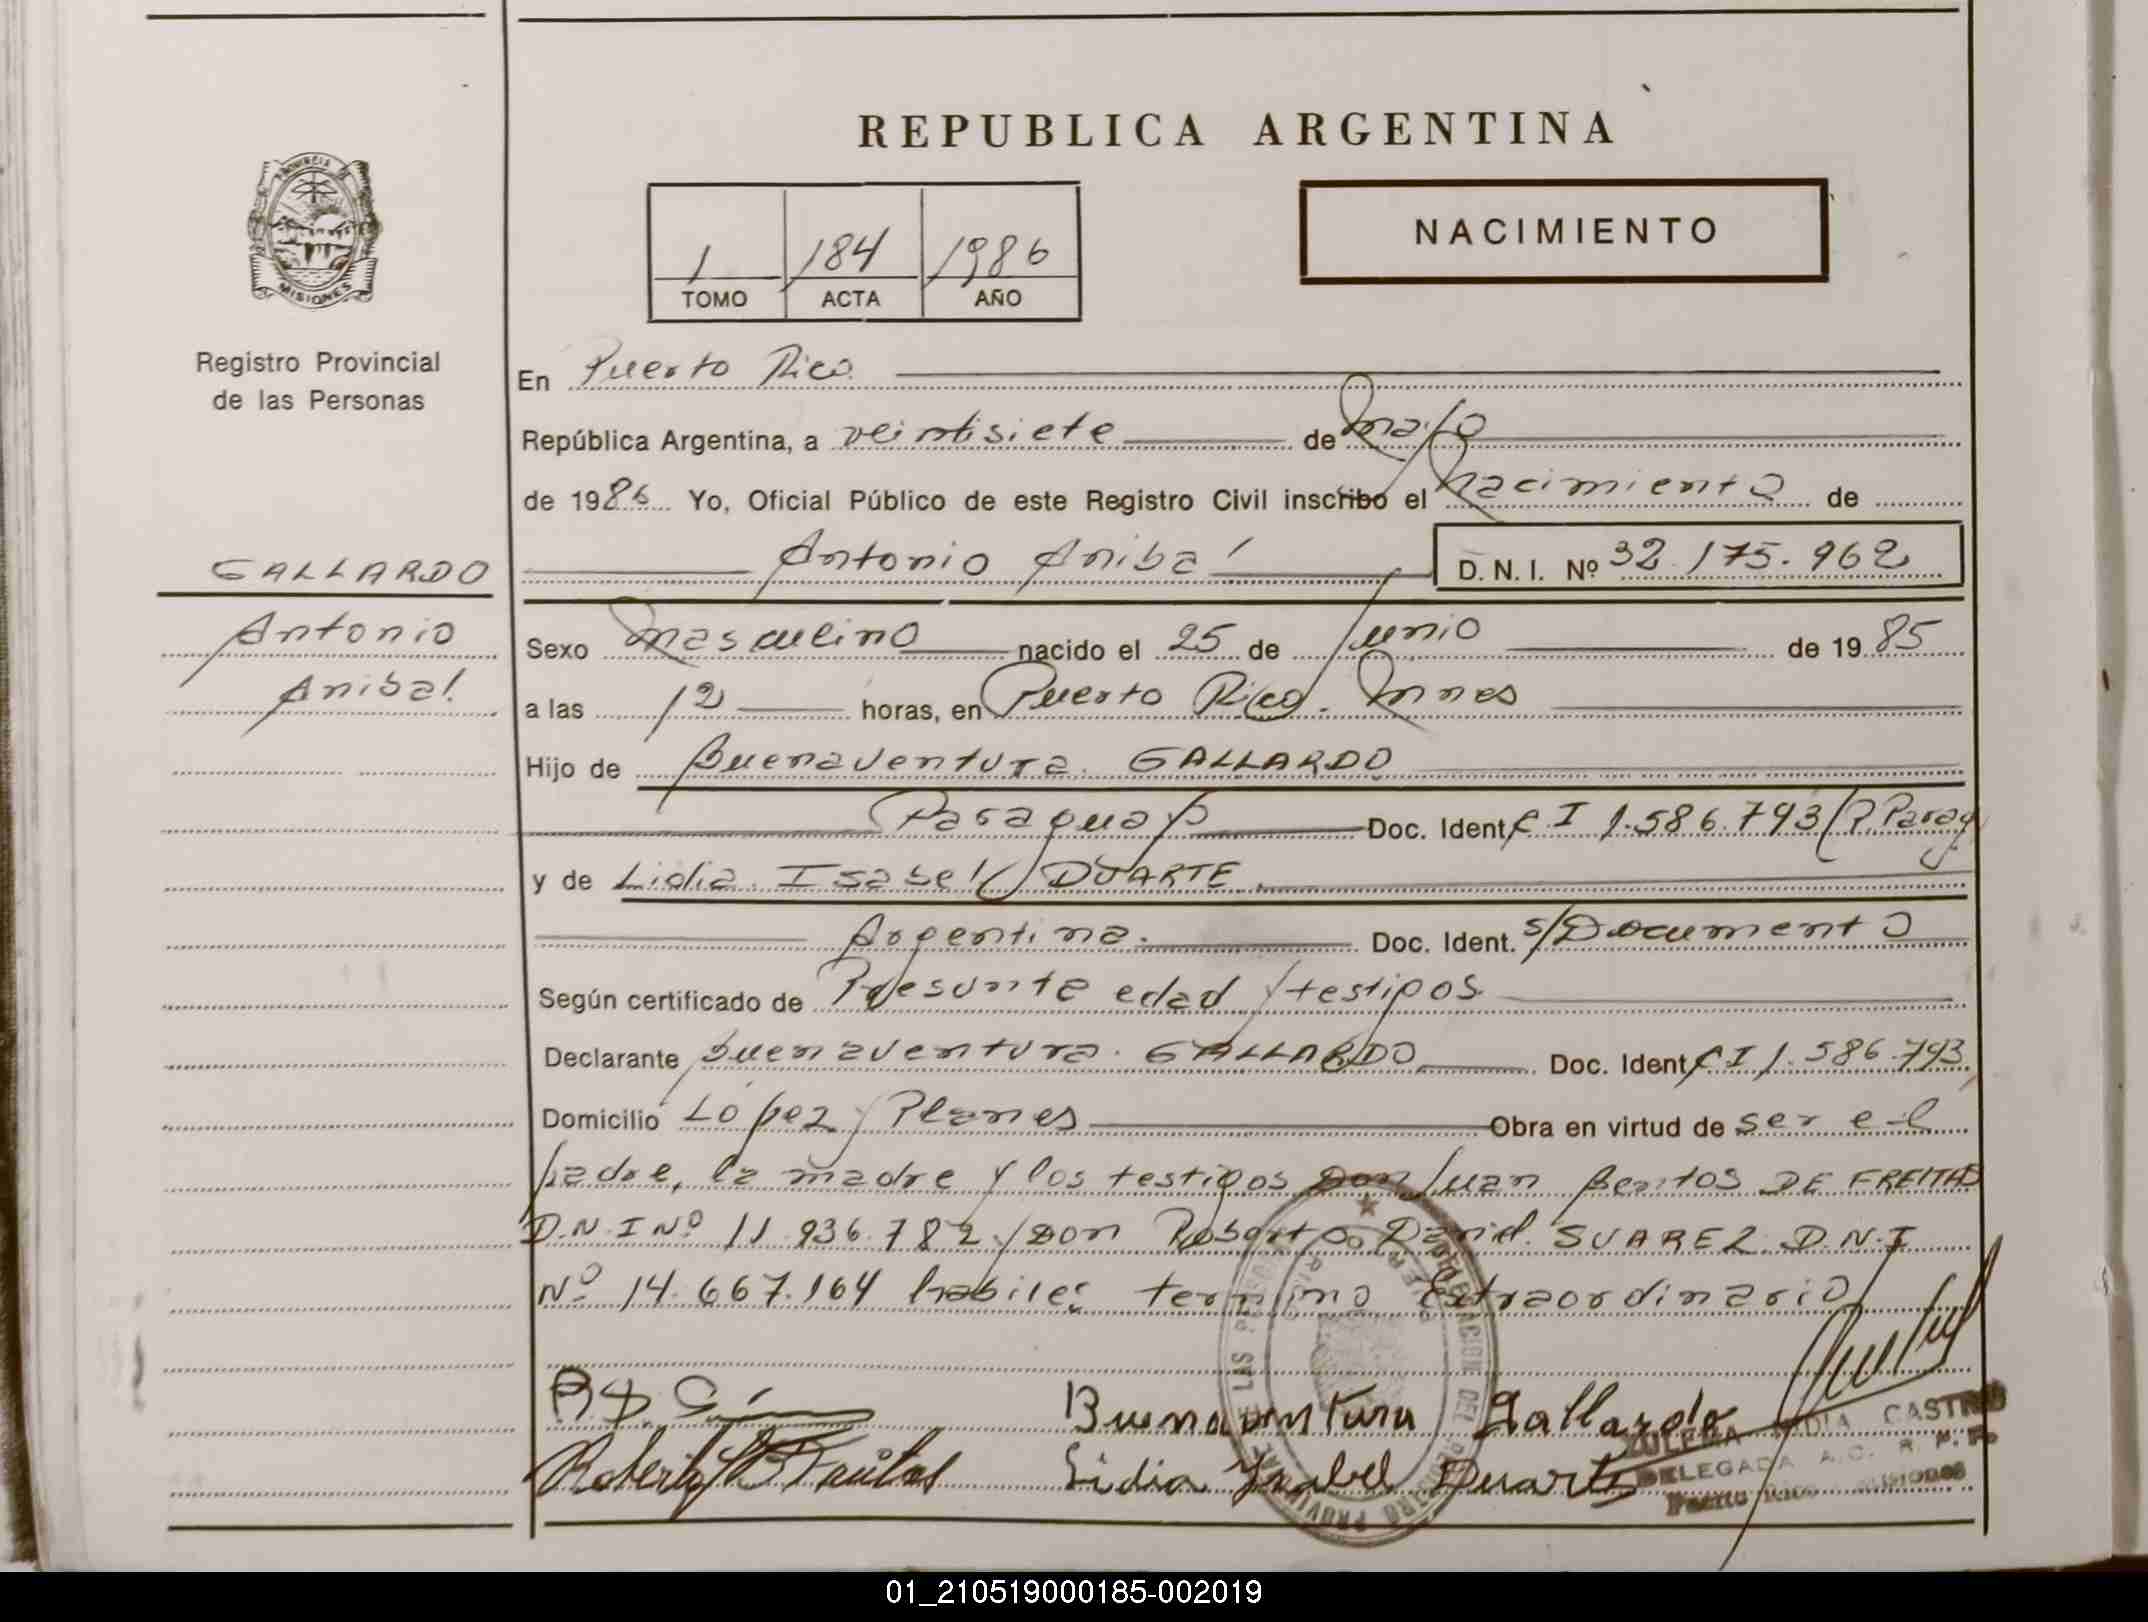 REPUBLICA ARGENTINA
PROVINCIA DE
MISIONES
Registro Provincial
de las Personas
1 184 1986
TOMO ACTA AÑO
NACIMIENTO
En Puerto Rico
República Argentina, a veintisiete de mayo
de 1986 Yo, Oficial Público de este Registro Civil inscribo el Nacimiento de
GALLARDO
Antonio
Anibal
Antonio Anibal D. N. I. Nº 32.175.962
Sexo Masculino nacido el 25 de junio de 1985
a las 12 horas, en Puerto Rico. Mnes
Hijo de Buenaventura GALLARDO
Paraguay Doc. Ident. C I 1.586.793 (P. Parag
y de Lidia Isabel DUARTE
Argentina. Doc. Ident. s/Documento
Según certificado de Presunta edad y testigos
Declarante Buenaventura GALLARDO Doc. Ident. C I 1.586.793
Domicilio López y Planes Obra en virtud de ser el
padre, la madre y los testigos Don Juan Bentos DE FREITAS
D.N.I Nº 11.936.782 y Don Roberto David SUAREZ D.N.I
Nº 14.667.164 habiles termino Extraordinario
Buenaventura Gallardo
Lidia Ysabel Duarte
ZULEMA LIDIA CASTRO
DELEGADA A.C. R. P. P.
Puerto Rico MISIONES
DELEGACION DEL REGISTRO PROVINCIAL DE LAS PERSONAS
PUERTO RICO
01_210519000185-002019